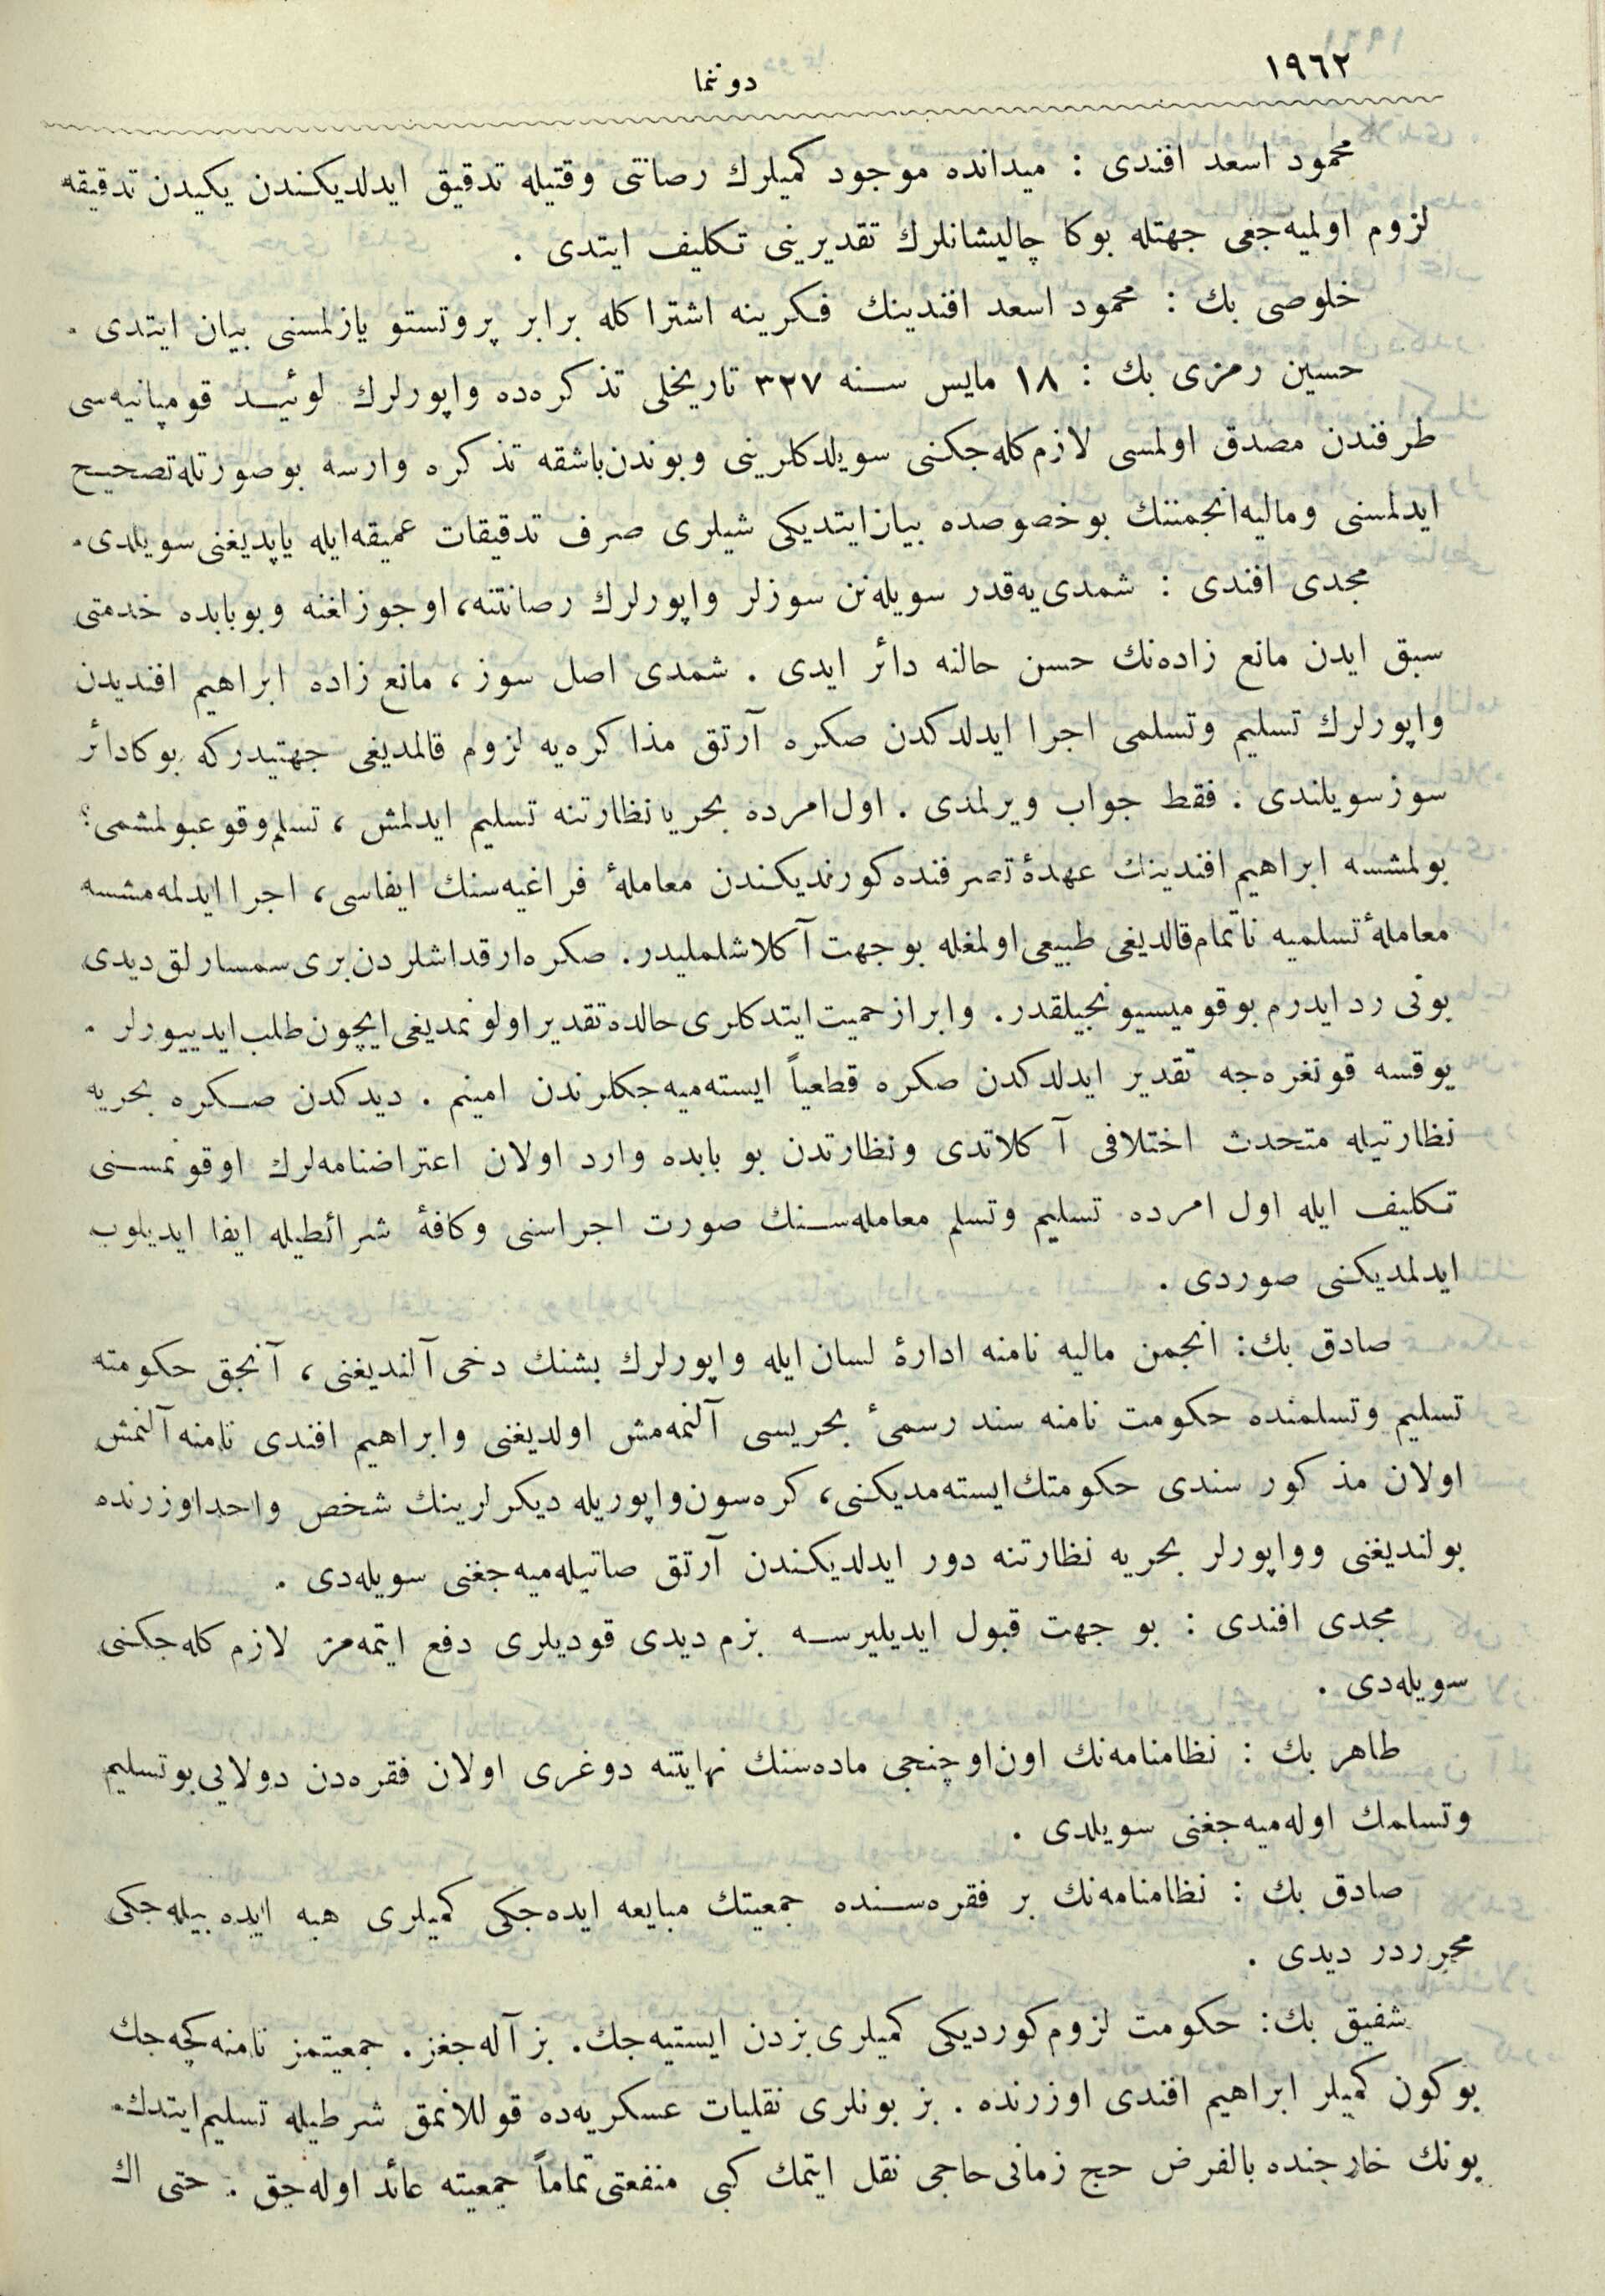 ١٩٦٢
دوننما
محمود اسعد افندی : میدانده موجود كمیلرك رصانتی وقتیله تدقیق ایدلدیكندن یكیدن تدقیقه
لزوم اولمیه‌جغی جهتله بوكا چالیشانلرك تقدیرینی تكلیف ایتدی .
خلوصی بك : محمود اسعد افندینك فكرینه اشتراكله برابر پروتستو یازلمسنی بیان ایتدی .
حسین رمزی بك : ١٨ مایس سنه ٣٢٧ تاریخلی تذكره‌ده واپورلرك لوئید قومپانیه‌سی
طرفندن مصدق اولمسی لازم‌كله‌جكنی سویلدكلرینی و بوندن‌باشقه تذكره وارسه بوصورتله‌تصحیح
ایدلمسنی ومالیه‌انجمننك بوخصوصده بیان‌ایتدیكی شیلری صرف تدقیقات عمیقه‌ایله یاپدیغنی‌سویلدی.
مجدی افندی : شمدی‌یه‌قدر سویله‌نن سوزلر واپورلرك رصانتنه، اوجوزلغنه وبوبابده خدمتی
سبق ایدن مانع زاده‌نك حسن حالنه دائر ایدی . شمدی اصل سوز ، مانع زاده ابراهیم افندیدن
واپورلرك تسلیم وتسلمی اجرا ایدلدكدن صكره آرتق مذاكره‌یه لزوم قالمدیغی جهتیدركه بوكادائر
سوزسویلندی . فقط جواب ویرلمدی . اول‌امرده بحریا نظارتنه تسلیم ایدلمش ، تسلم‌وقوعبولمشمی؟
بولمشسه ابراهیم افندینك عهدهٔ تصرفنده كورندیكندن معاملهٔ فراغیه‌سنك ایفاسی، اجرا ایدلمه‌مشسه
معاملهٔ تسلمیه ناتمام‌قالدیغی طبیعی‌اولمغله بوجهت آكلاشلملیدر. صكره‌ارقداشلردن‌بری‌سمسارلق‌دیدی
بونی رد ایدرم بوقومیسیونجیلقدر. وابراز حمیت‌ایتدكلری‌حالده‌تقدیر اولونمدیغی‌ایچون‌طلب‌ایدییورلر .
یوقسه قونغره‌جه تقدیر ایدلدكدن صكره قطعیاً ایسته‌میه‌جكلرندن امینم . دیدكدن صكره بحریه
نظارتیله متحدث اختلافی آكلاتدی ونظارتدن بو بابده وارد اولان اعتراضنامه‌لرك اوقونمسنی
تكلیف ایله اول امرده تسلیم وتسلم معامله‌سنك صورت اجراسنی وكافهٔ شرائطیله ایفا ایدیلوب
ایدلمدیكنی صوردی .
صادق بك: انجمن مالیه نامنه ادارهٔ لسان‌ایله واپورلرك بشنك دخی‌آلندیغنی ، آنجق حكومته
تسلیم وتسلمنده حكومت نامنه سند رسمیٔ بحریسی آلنمه‌مش اولدیغنی وابراهیم افندی نامنه‌آلنمش
اولان مذكور سندی حكومتك‌ایسته‌مدیكنی، كره‌سون‌واپوریله دیكرلرینك شخص واحداوزرنده
بولندیغنی وواپورلر بحریه نظارتنه دور ایدلدیكندن آرتق صاتیله‌میه‌جغنی سویله‌دی .
مجدی افندی : بو جهت قبول ایدیلیرسه بزم دیدی قودیلری دفع ایتمه‌مز لازم كله‌جكنی
سویله‌دی .
طاهر بك : نظامنامه‌نك اون‌اوچنجی ماده‌سنك نهایتنه دوغری اولان فقره‌دن دولایی‌بوتسلیم
وتسلمك اوله‌میه‌جغنی سویلدی .
صادق بك : نظامنامه‌نك بر فقره‌سنده جمعیتك مبایعه ایده‌جكی كمیلری هبه ایده‌بیله‌جكی
محرردر دیدی .
شفیق بك: حكومت لزوم‌كوردیكی كمیلری‌بزدن ایستیه‌جك. بز آله‌جغز. جمعیتمز نامنه‌كچه‌جك
بوكون كمیلر ابراهیم افندی اوزرنده . بز بونلری نقلیات عسكریه‌ده قوللانمق شرطیله تسلیم‌ایتدك.
بونك خارجنده بالفرض حج زمانی‌حاجی نقل ایتمك كبی منفعتی‌تماماً جمعیته عائد اوله‌جق . حتی اك